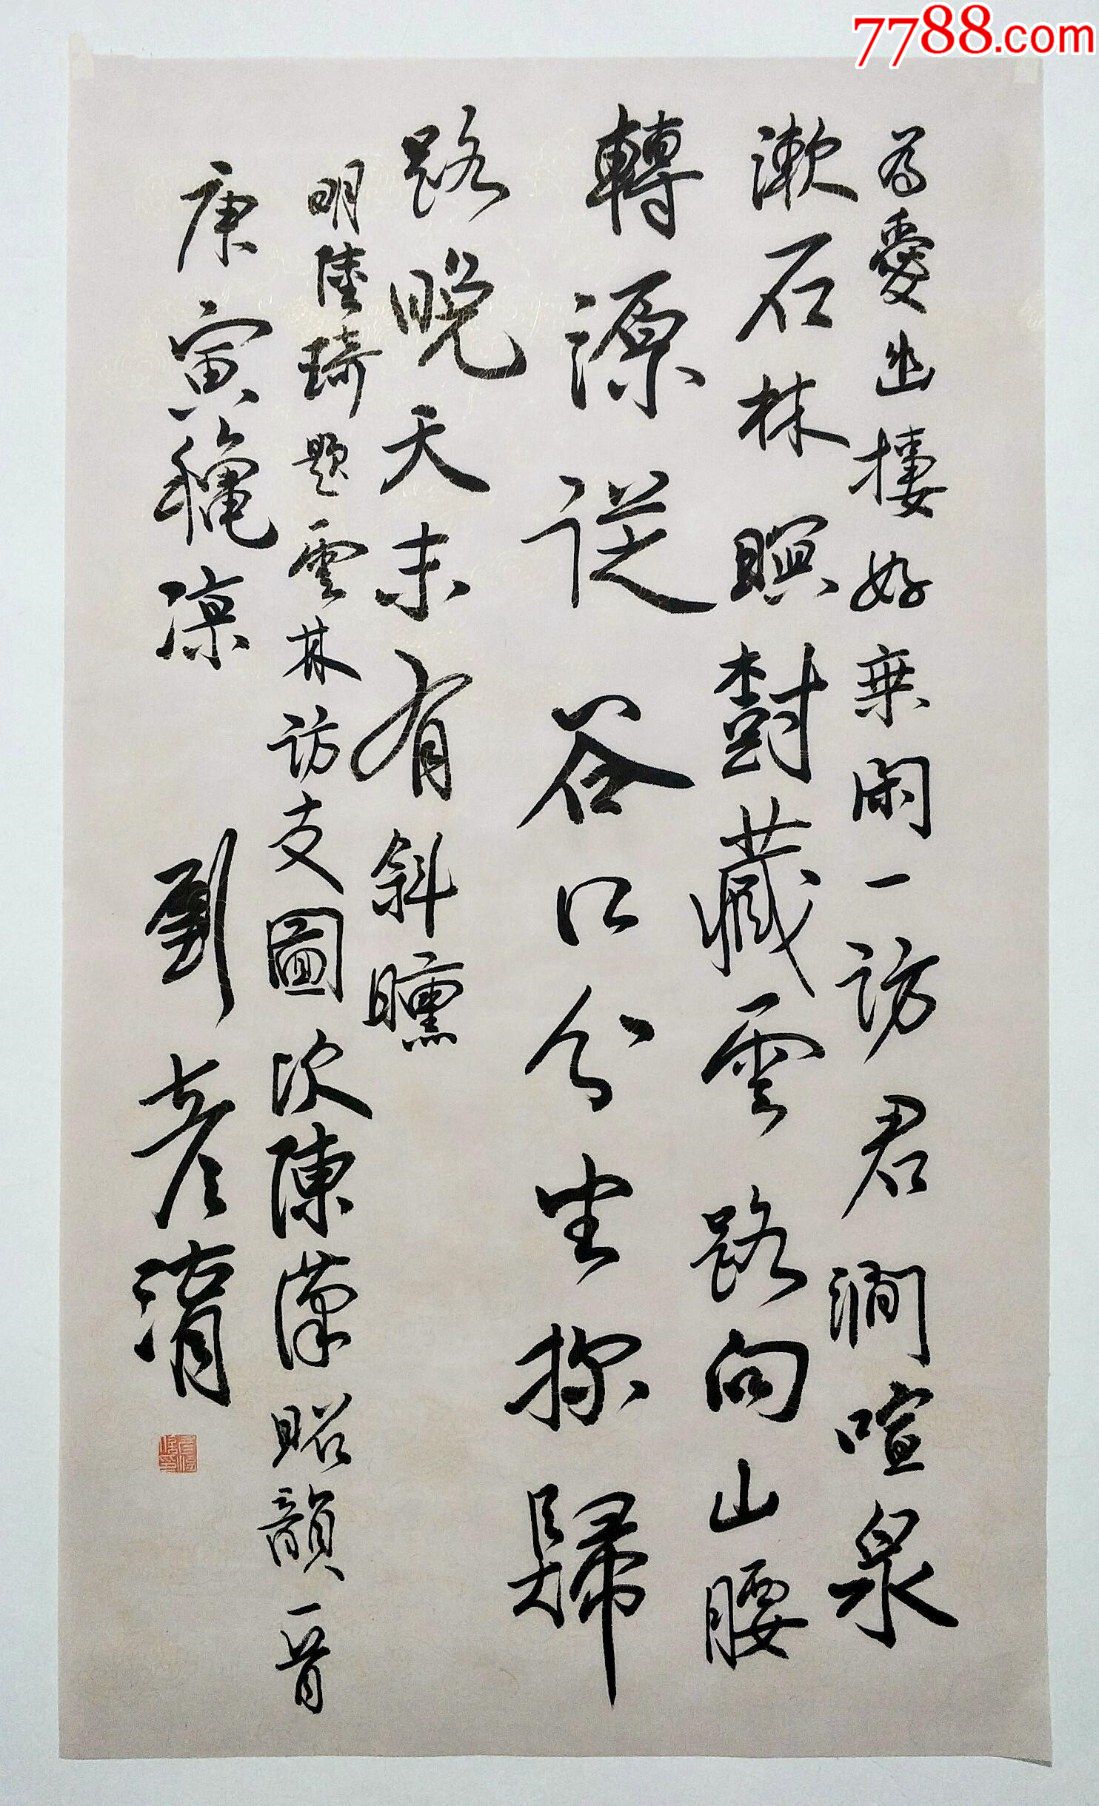 7788.com
為愛幽棲好乘閑一訪君澗喧泉
漱石林暝樹藏雲路向山腰
轉源從谷口分坐深歸
路晚天末有斜曛
明陸琦題雲林訪友圖次陳漢昭韻一首
庚寅穐凉 劉彥湖